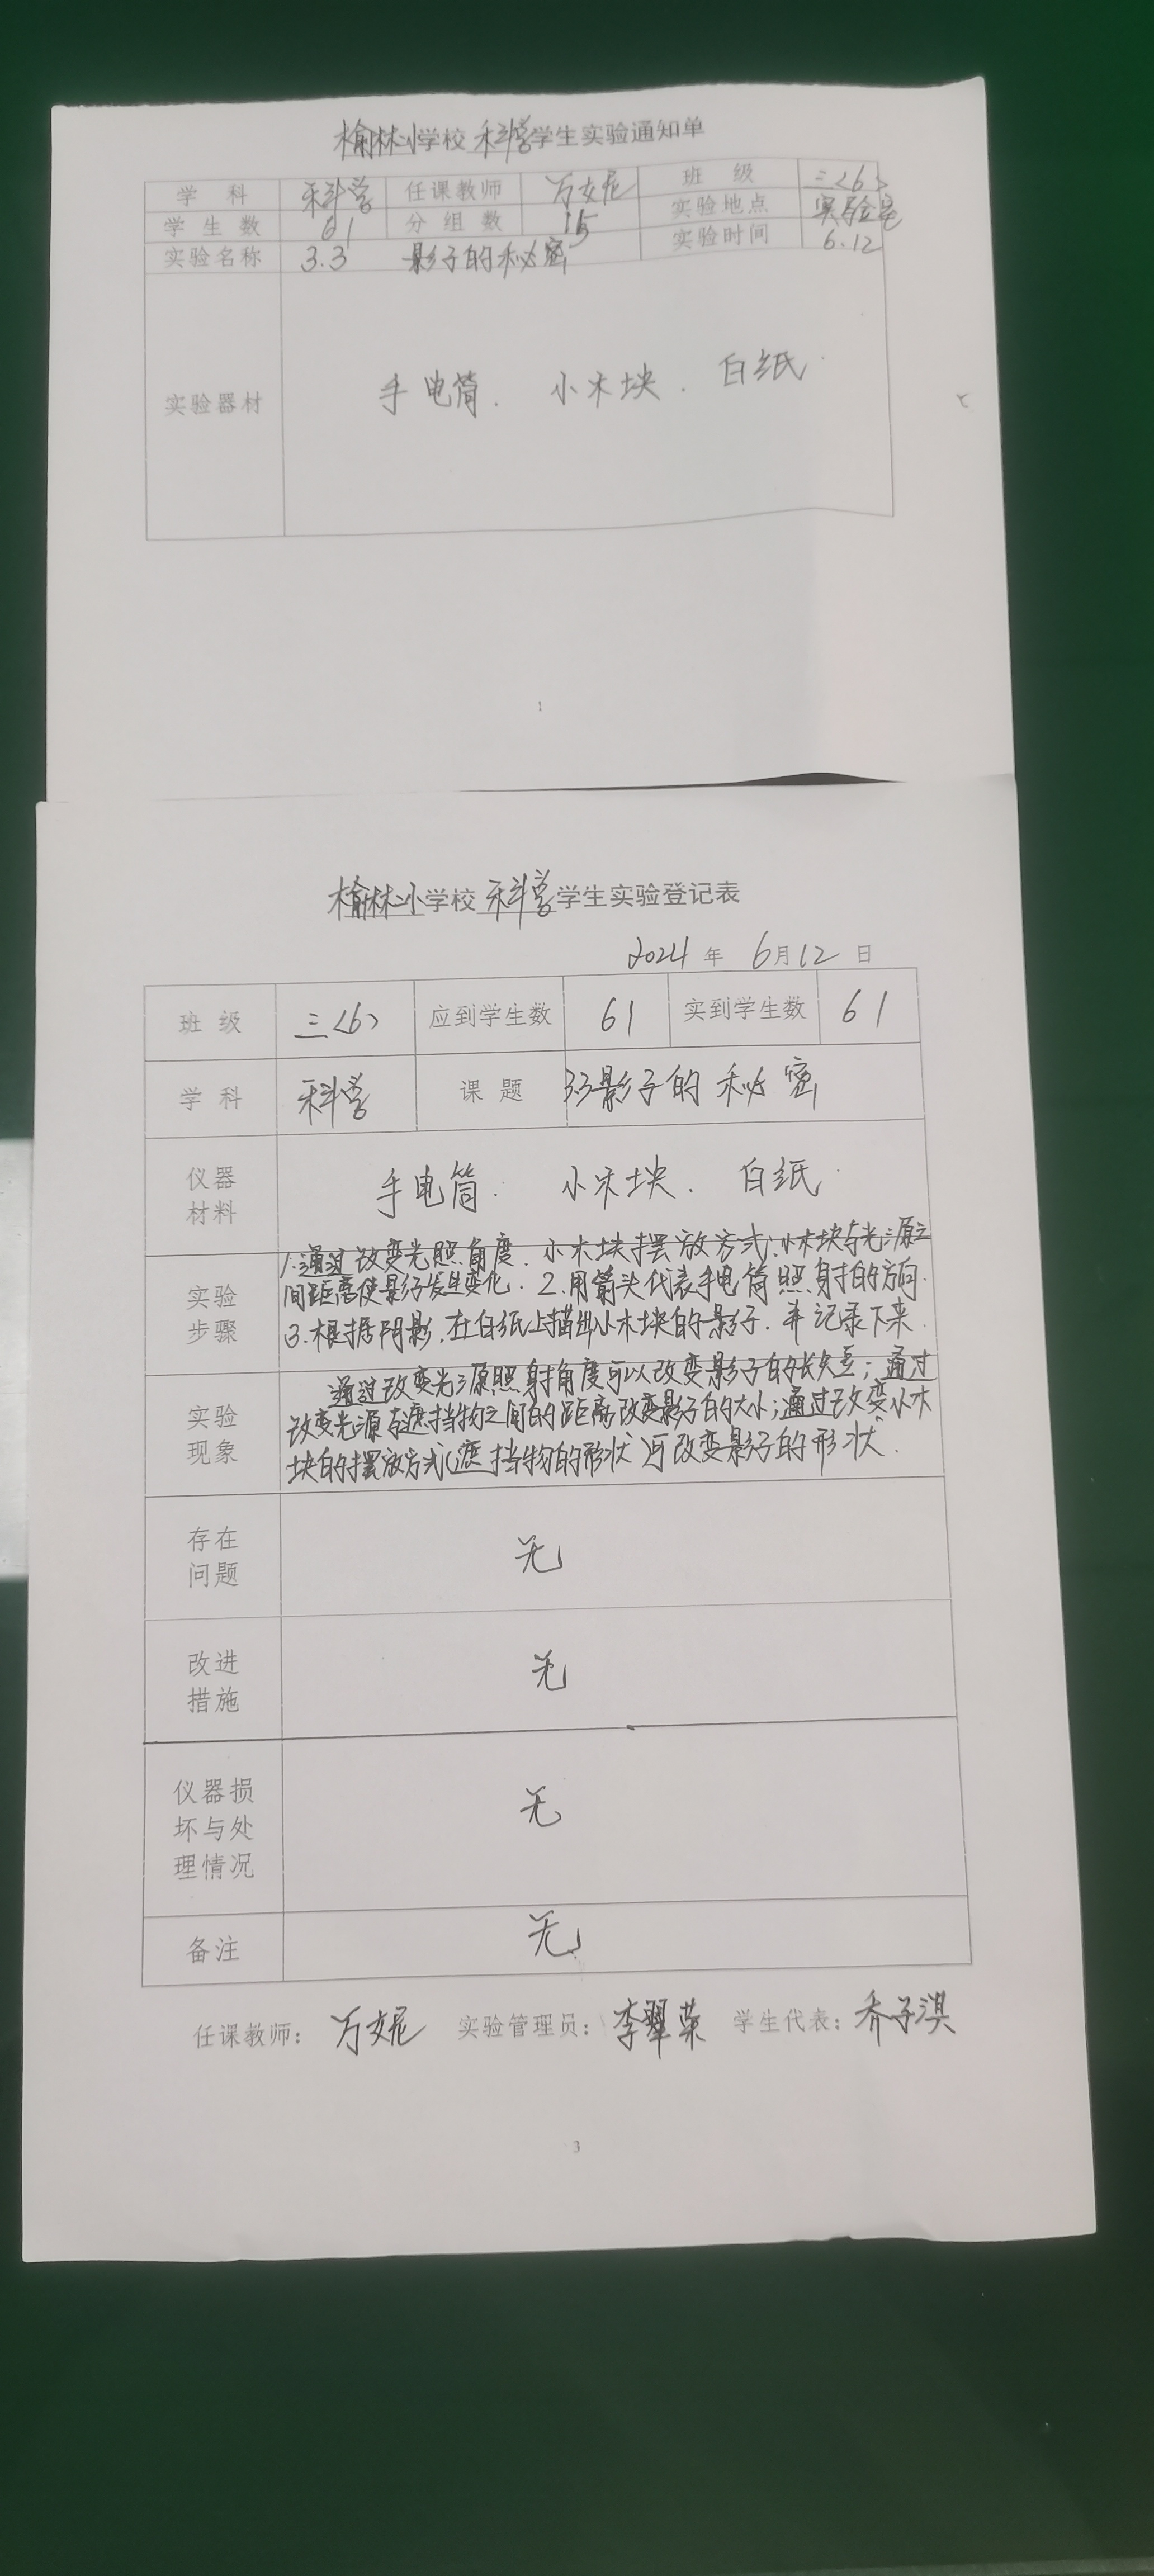 榆林小学校 科学学生实验通知单
学 科 科学 任课教师 万女尼 班 级 三<6>
学生数 61 分组数 15 实验地点 实验室
实验名称 3.3 影子的秘密 实验时间 6.12
实验器材 手电筒. 小木块. 白纸.
1
榆林小学校 科学学生实验登记表
2024 年 6月12 日
班 级 三<6> 应到学生数 61 实到学生数 61
学 科 科学 课 题 3.3影子的秘密
仪器
材料
手电筒. 小木块. 白纸.
实验
步骤
1.通过改变光照角度. 小木块摆放方式;小木块与光源之
间距离使影子发生变化. 2.用箭头代表手电筒照射的方向.
3.根据阴影.在白纸上描出小木块的影子.并记录下来.
实验
现象
通过改变光源照射角度可以改变影子的长短;通过
改变光源与遮挡物之间的距离改变影子的大小;通过改变小木
块的摆放方式(遮挡物的形状)可改变影子的形状.
存在
问题
无
改进
措施
无
仪器损
坏与处
理情况
无
备注 无
任课教师: 万女尼 实验管理员: 李翠荣 学生代表: 乔子淇
3